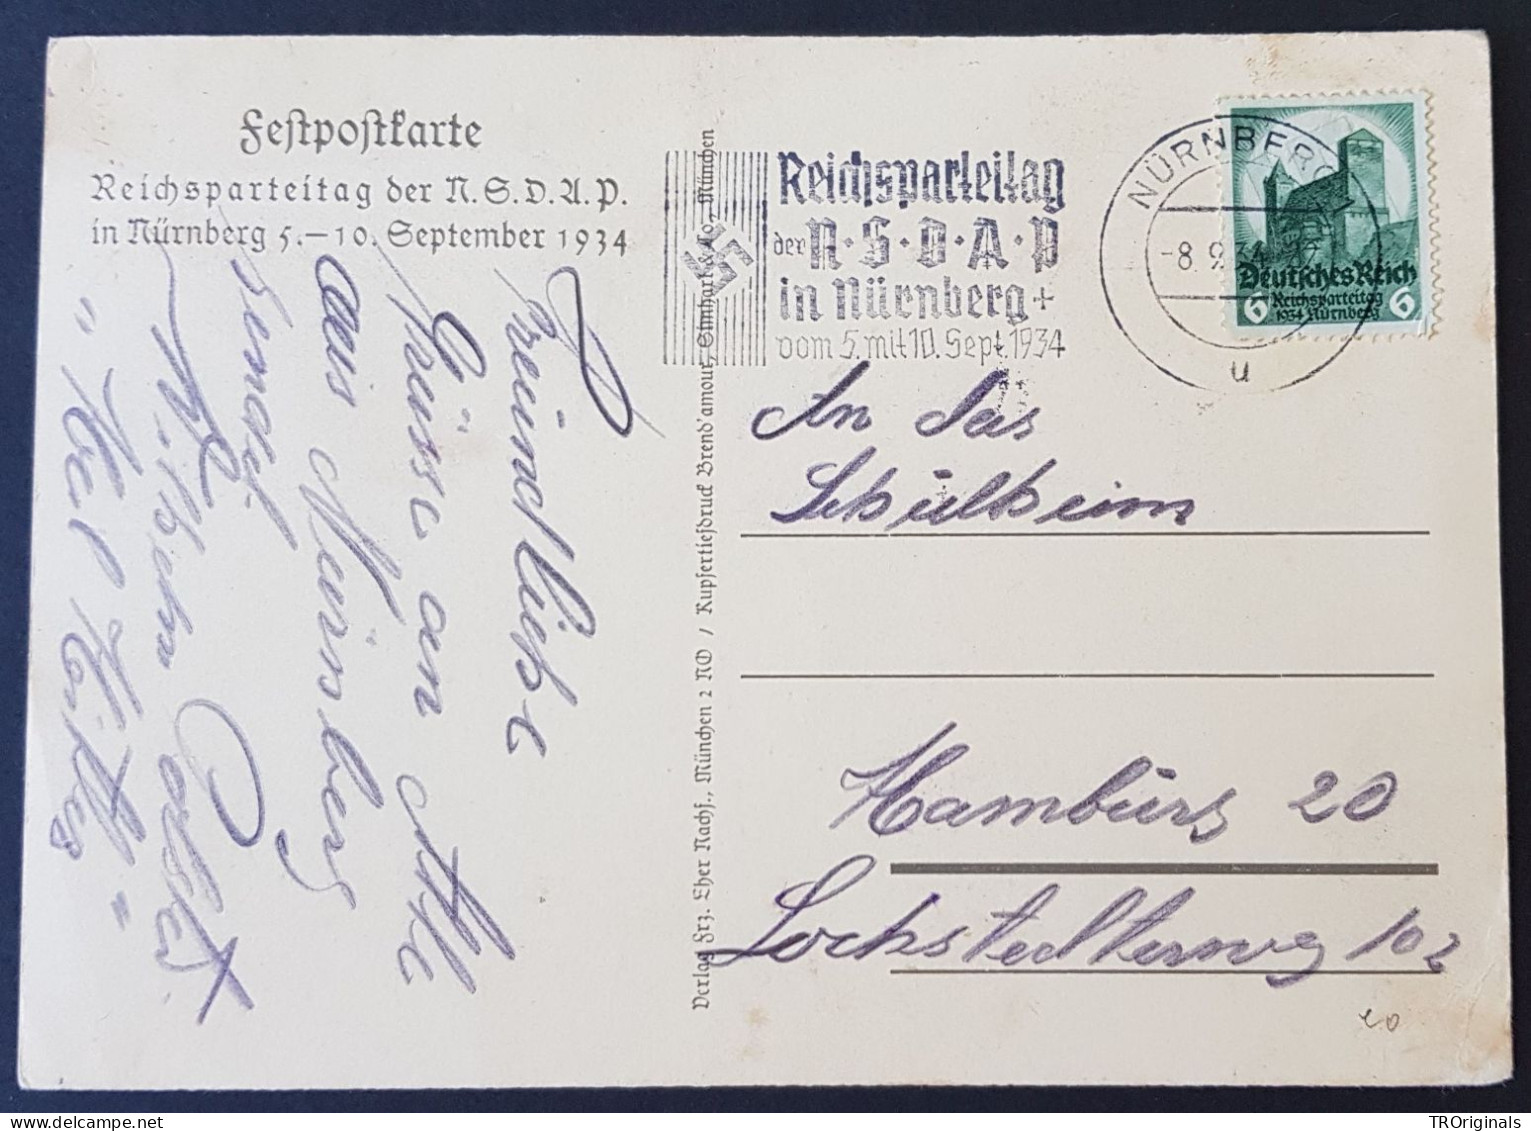 Festpostkarte
Reichsparteitag der N.S.D.A.P.
in Nürnberg 5.–10. September 1934
Freundliche
Grüsse an Alle
aus Nürnberg
sendet
"Heil Hitler"
Verlag Frz. Eher Nachf., München 2 NO / Kupfertiefdruck Brend'amour, Simhart & Co., München
Reichsparteitag
der N·S·D·A·P
in Nürnberg +
vom 5. mit 10. Sept. 1934
NÜRNBERG
-8.9.34
u
Deutsches Reich
6 Reichsparteitag 6
1934 Nürnberg
An das
Schulheim
Hamburg 20
Lockstedterweg 102
20
TROriginals